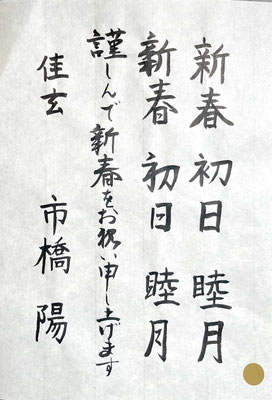 新春 初日 睦月
新春 初日 睦月
謹しんで新春をお祝い申し上げます
佳玄 市橋 陽